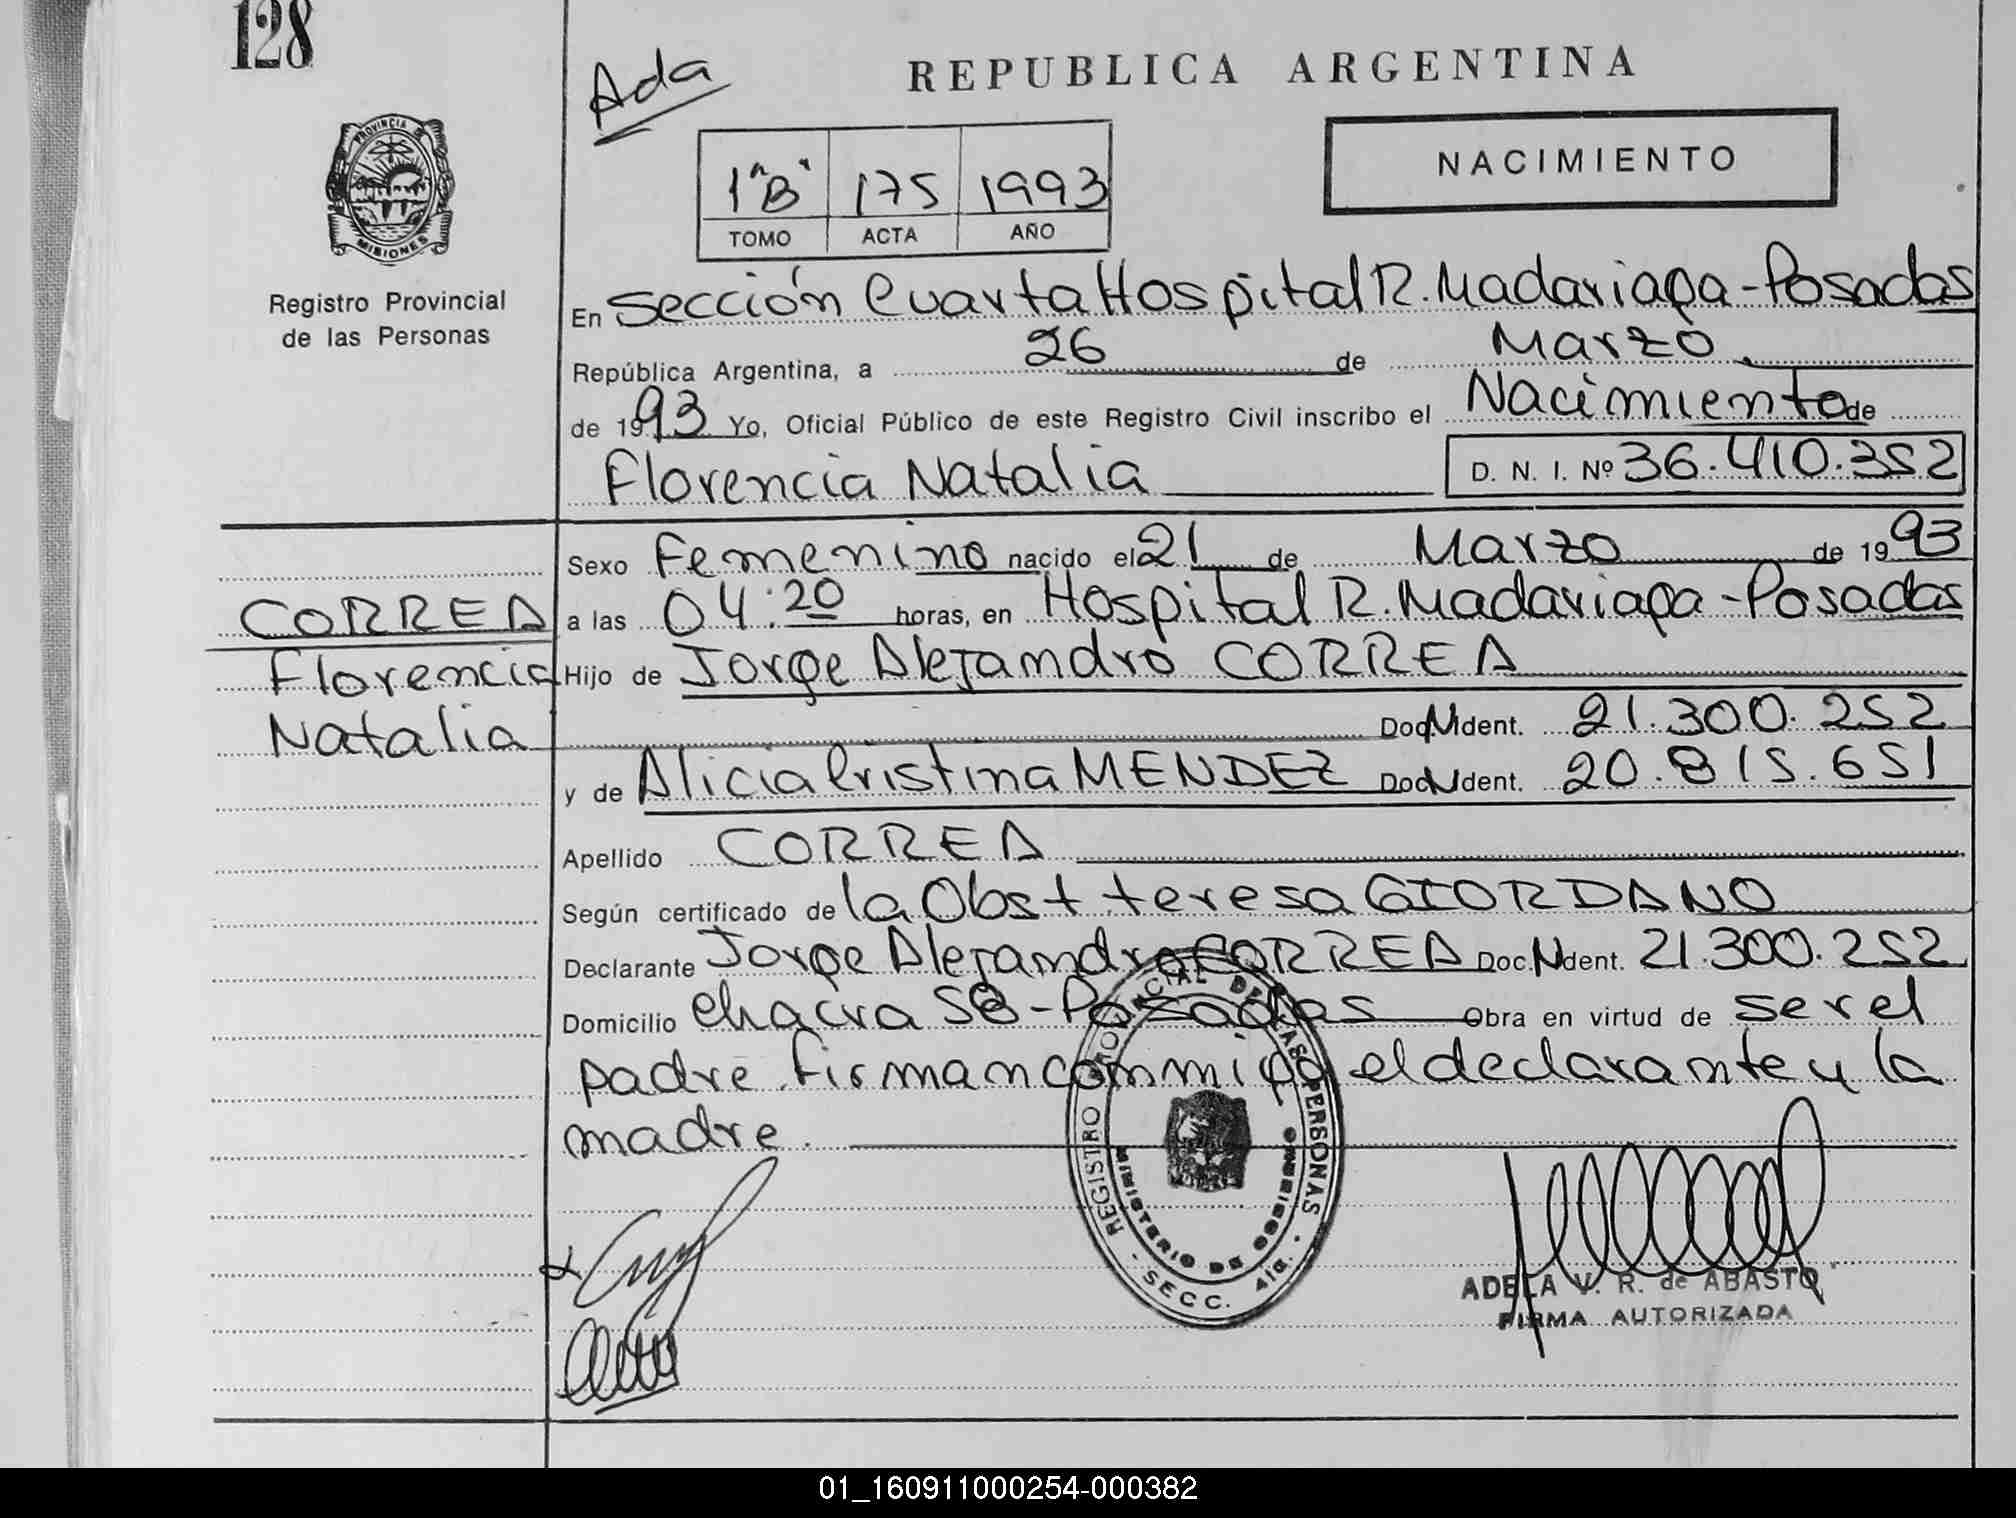 128
Ada
REPUBLICA ARGENTINA
NACIMIENTO
1 "B" 175 1993
TOMO ACTA AÑO
PROVINCIA DE
MISIONES
Registro Provincial
de las Personas
En Sección Cuarta Hospital R. Madariaga - Posadas
República Argentina, a 26 de Marzo
de 1993 Yo, Oficial Público de este Registro Civil inscribo el Nacimiento de
Florencia Natalia D. N. I. Nº 36.410.352
Sexo Femenino nacido el 21 de Marzo de 1993
CORREA
Florencia
Natalia
a las 04:20 horas, en Hospital R. Madariaga - Posadas
Hijo de Jorge Alejandro CORREA
Doc. Ident. 21.300.252
y de Alicia Cristina MENDEZ Doc. Ident. 20.815.651
Apellido CORREA
Según certificado de la Obst teresa GIORDANO
Declarante Jorge Alejandro CORREA Doc. Ident. 21.300.252
Domicilio chacra 58 - Posadas Obra en virtud de ser el
padre firman conmigo el declarante y la
madre.
REGISTRO PROVINCIAL DE LAS PERSONAS
MINISTERIO DE GOBIERNO
- SECC. 4ta. -
ADELA V. R. de ABASTO
FIRMA AUTORIZADA
01_160911000254-000382